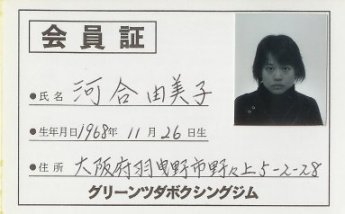 会員証
●氏名 河合由美子
●生年月日 1968年 11月 26日生
●住所 大阪府羽曳野市野々上5-2-28
グリーンツダボクシングジム